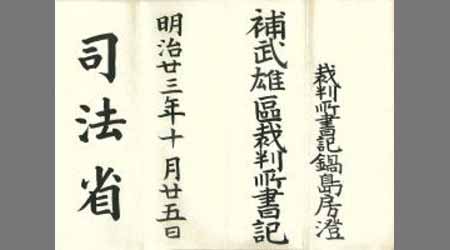 裁判所書記鍋島房澄
補武雄區裁判所書記
明治廿三年十月廿五日
司法省